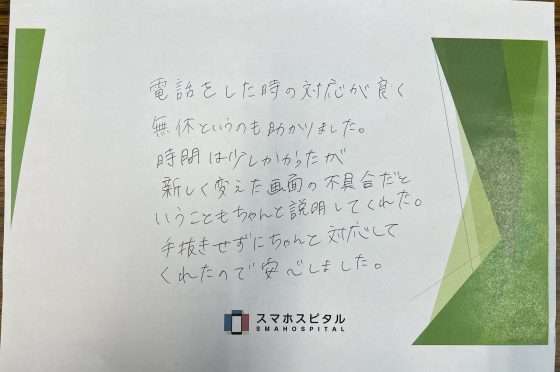 電話をした時の対応が良く
無休というのも助かりました。
時間は少しかかったが
新しく変えた画面の不具合だと
いうこともちゃんと説明してくれた。
手抜きせずにちゃんと対応して
くれたので安心しました。
スマホスピタル
SMAHOSPITAL